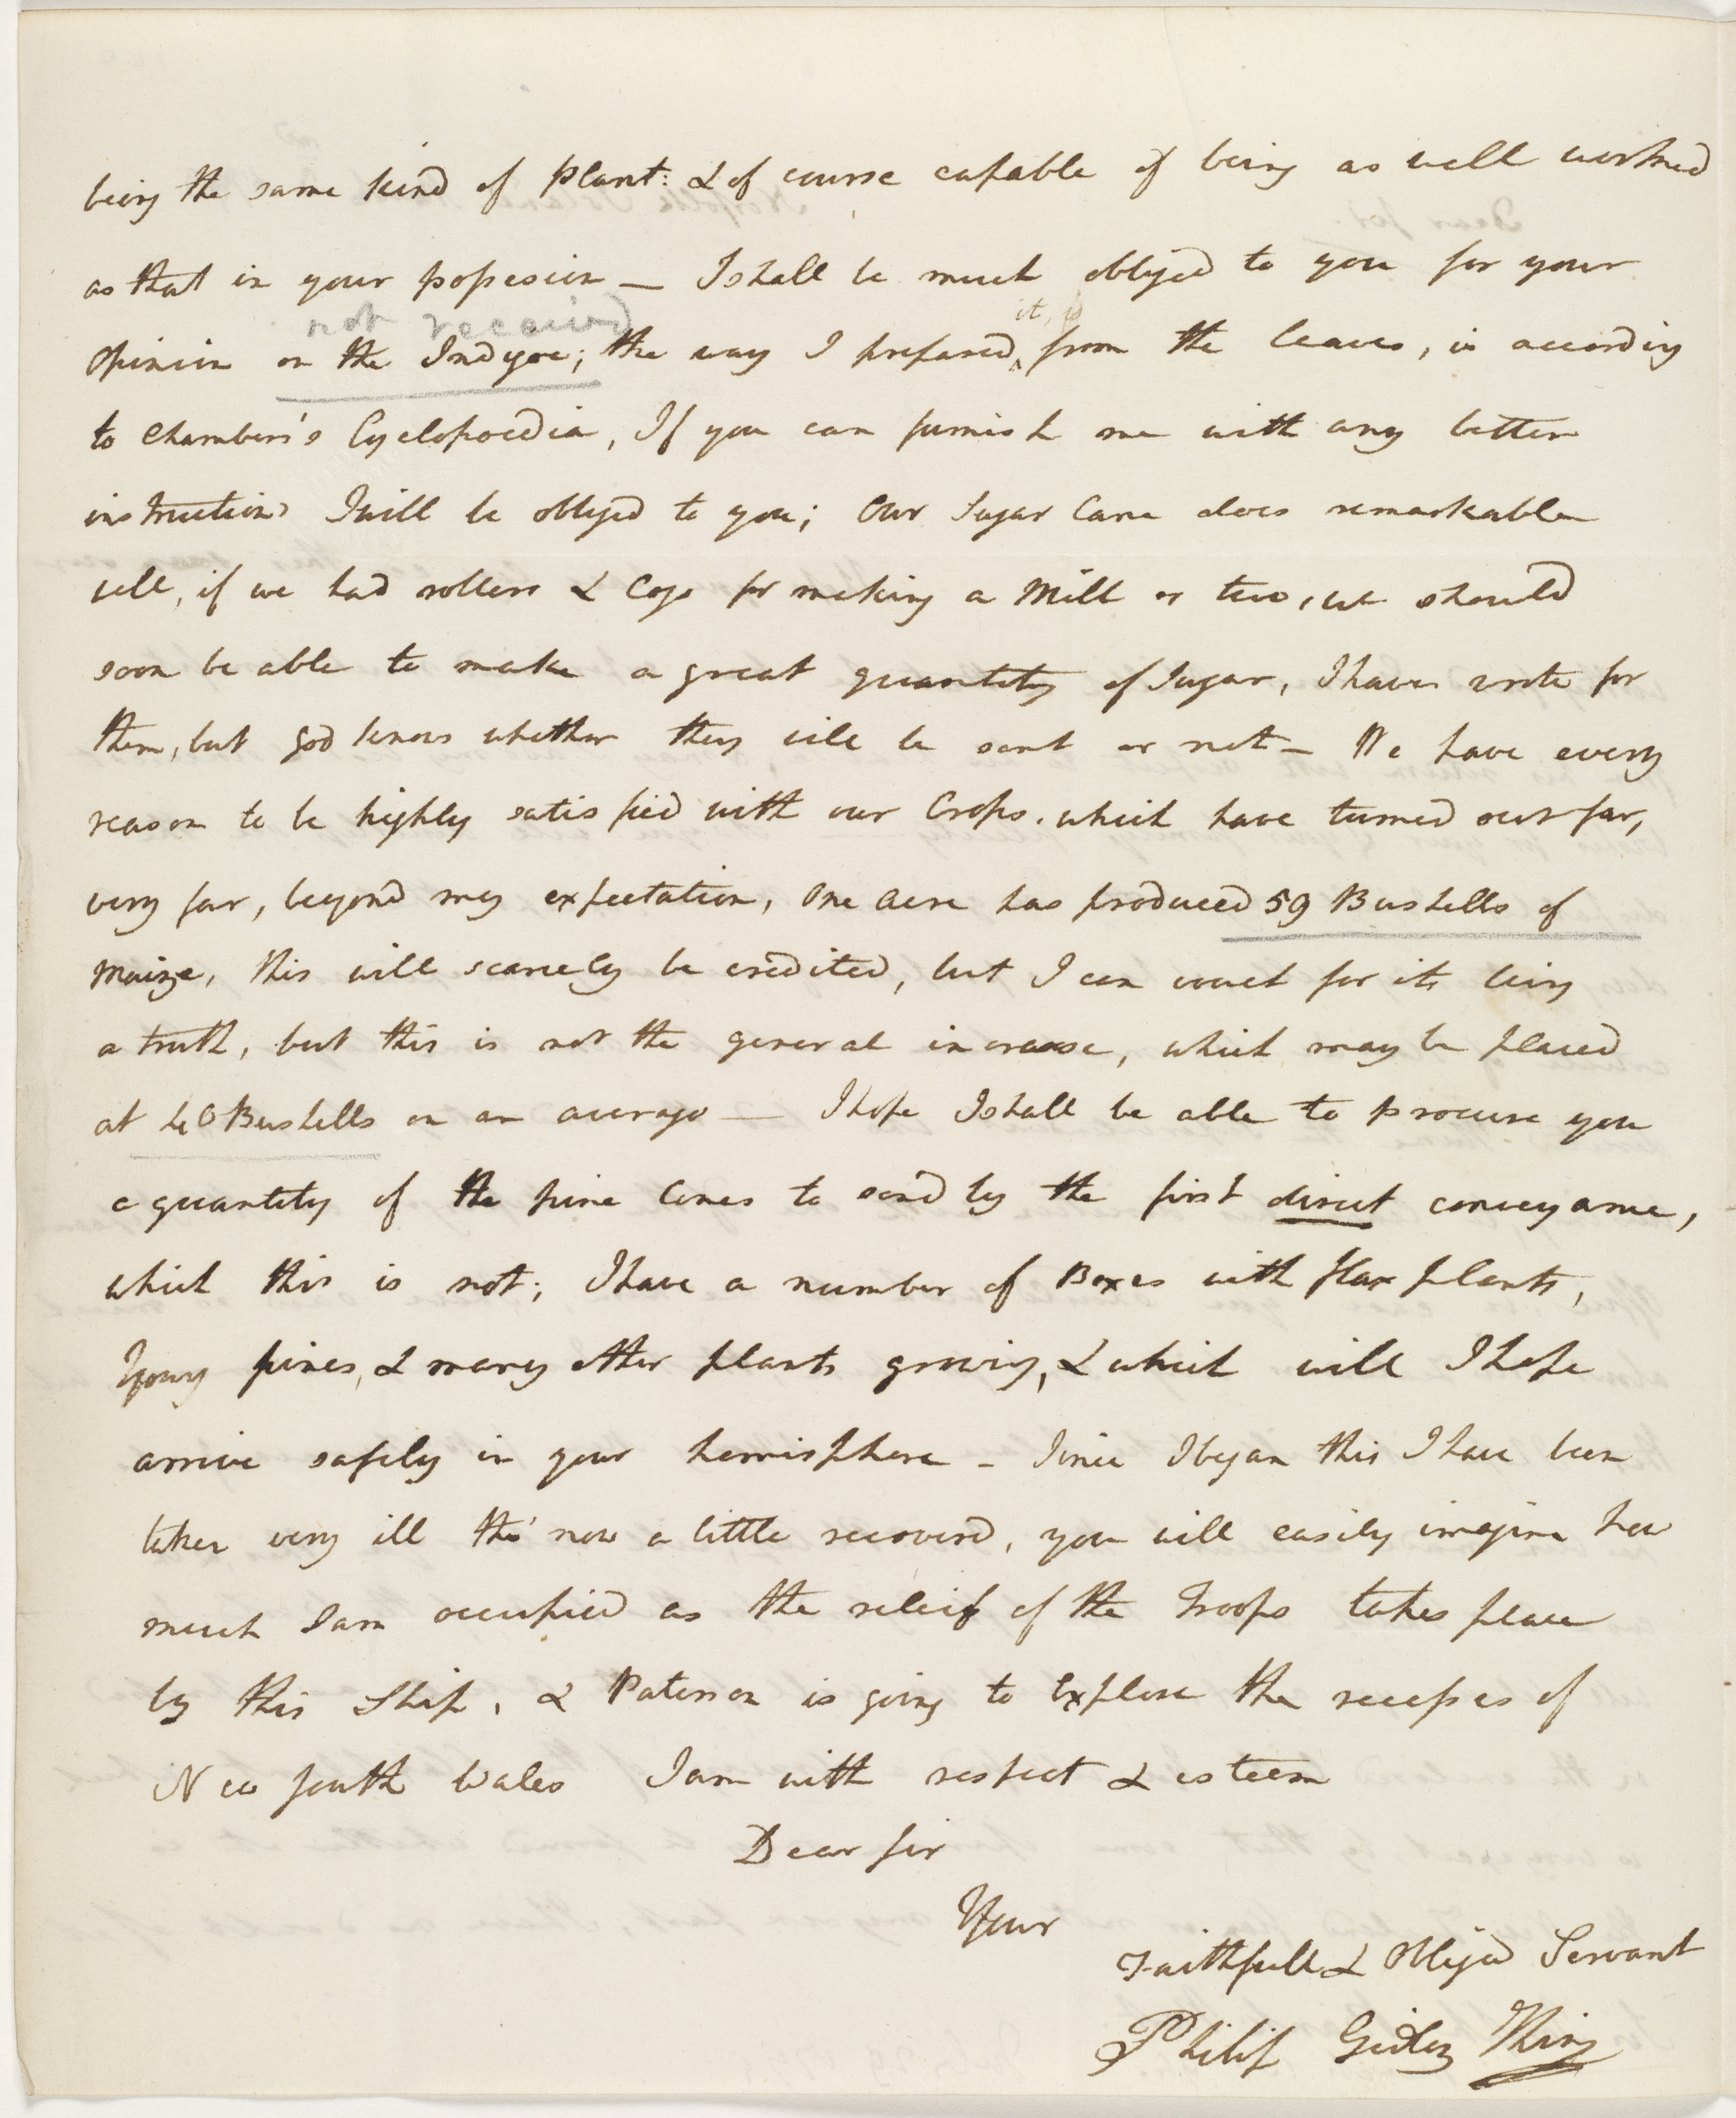 being the same kind of plant: & of course capable of being as well worked
as that in your possesion — I shall be much obliged to you for your
not received
it,
opinion on the Indigoe; the way I prepared from the leaves, is according
to Chambers's Cyclopoedia, If you can furnish me with any better
instructions I will be obliged to you; Our Sugar Cane does remarkable
well, if we had rollers & Cogs for making a Mill or two, we should
soon be able to make a great quantity of Sugar, I have wrote for
them, but god knows whether they will be sent or not — We have every
reason to be highly satisfied with our Crops. which have turned out far,
very far, beyond my expectation, One Acre has produced 59 Bushells of
Maize, this will scarcely be credited, but I can vouch for its being
a truth, but this is not the general increase, which may be placed
at 40 Bushells on an average — I hope I shall be able to procure you
a quantity of the pine Cones to send by the first direct conveyance,
which this is not; I have a number of Boxes with flax plants,
Young pines, & many other plants growing, & which will I hope
arrive safely in your hemisphere — Since I began this I have been
taken very ill tho' now a little recoverd, you will easily imagine how
much I am occupied as the releif of the Troops takes place
by this Ship, & Paterson is going to Explore the recesses of
New South Wales I am with respect & esteem
Dear Sir
Your
Faithfull & Obliged Servant
Philip Gidley King